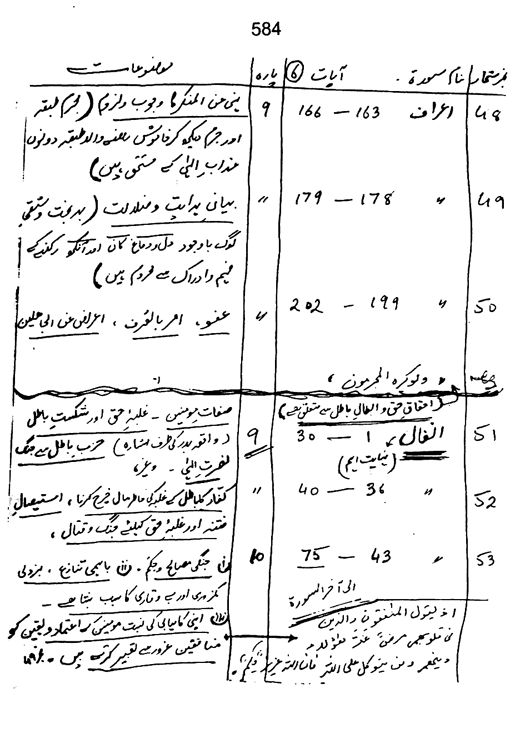 584
نمبر شمار نام سورۃ . آیات ⑥ پارہ موضوعات
48 اعراف 163 — 166 9 نہی عن المنکر کا وجوب ولزوم (مجرم طبقہ
اور جرم دیکھ کر خاموش رہنے والا طبقہ دونوں
عذابِ الٰہی کے مستحق ہیں)
49 〃 178 — 179 〃 بیان ہدایت و ضلالت (بدبخت و شقی
لوگ باوجود دل و دماغ کان اور آنکھ رکھنے کے
فہم و ادراک سے محروم ہیں)
50 〃 199 — 202 〃 عفو ، امر بالعرف ، اعراض عن الجاھلین
ولوکرہ المجرمون ،
(احقاقِ حق و ابطالِ باطل سے متعلق ہے)
51 انفال 1 — 30 9 صفاتِ مومنین ۔ غلبۂ حق اور شکستِ باطل
(نہایت اہم) (واقعہ بدر کی طرف اشارہ) حزب باطل سے جنگ
نصرتِ الٰہی ۔ وغیرہ
52 〃 36 — 40 〃 کفار کا باطل کے غلبہ کی خاطر مال خرچ کرنا ، استیصالِ
فتنہ اور غلبۂ حق کیلئے جنگ و قتال ،
53 〃 43 — 75 10 جنگی مصالح و حِکم . باہمی تنازع ، بزدلی
الی آخر السورۃ کمزوری اور بے وقاری کا سبب بنتا ہے ۔
اذ یقول المنٰفقون والذین اپنی کامیابی کی نسبت مومنین کے اعتماد و یقین کو
فی قلوبھم مرض غر ھٰؤلاء منافقین غرور سے تعبیر کرتے ہیں ۔
دینھم ومن یتوکل علی اللہ فان اللہ عزیز حکیم